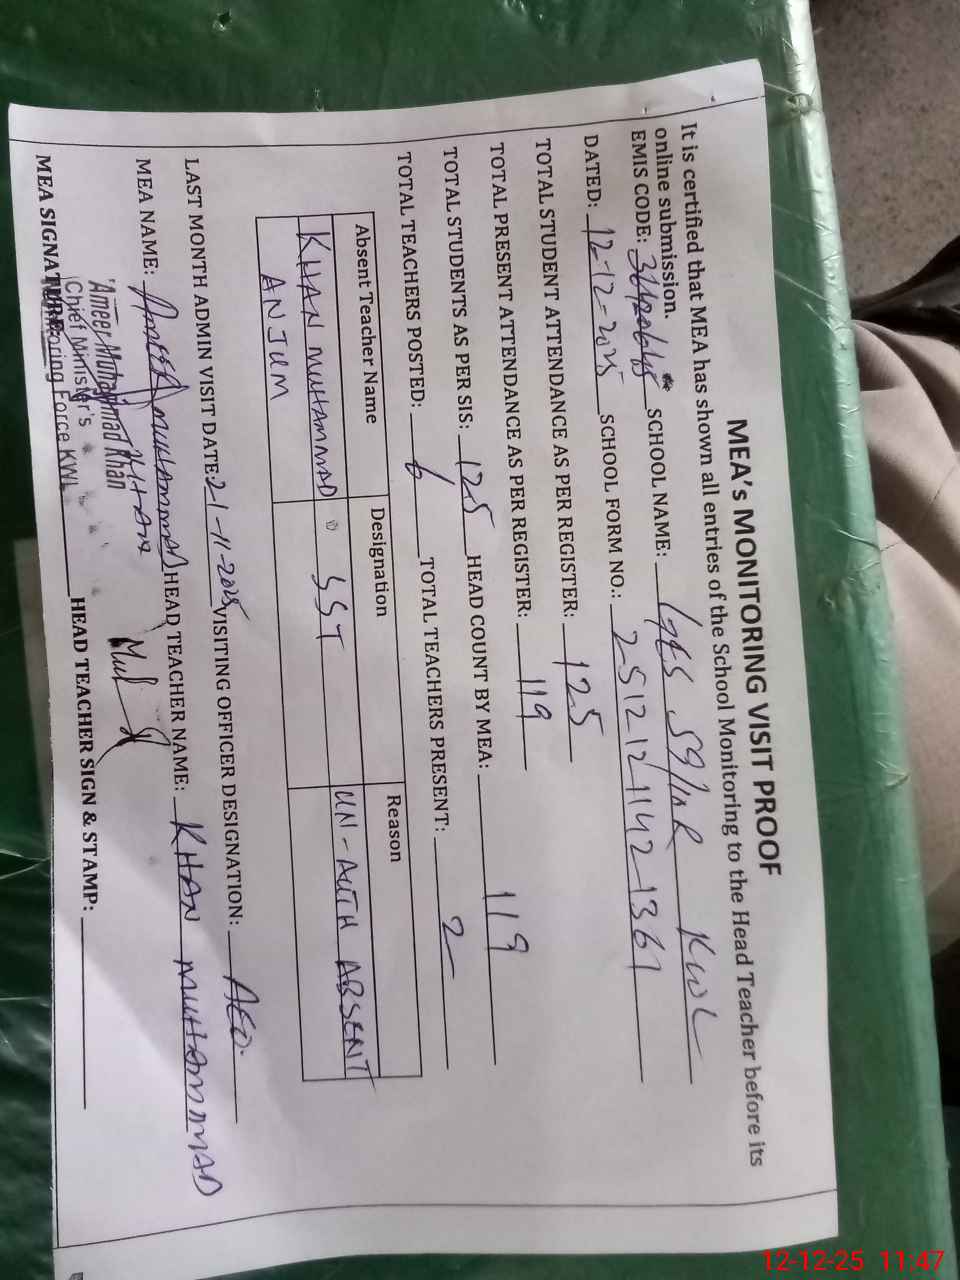 MEA's MONITORING VISIT PROOF
It is certified that MEA has shown all entries of the School Monitoring to the Head Teacher before its
online submission.
EMIS CODE: SCHOOL NAME: GES 59/12 R KWL
DATED: 12-12-2025 SCHOOL FORM NO.: 251212 1142-1361
TOTAL STUDENT ATTENDANCE AS PER REGISTER: 125
TOTAL PRESENT ATTENDANCE AS PER REGISTER: 119
TOTAL STUDENTS AS PER SIS: 125 HEAD COUNT BY MEA: 119
TOTAL TEACHERS POSTED: 6 TOTAL TEACHERS PRESENT: 2
Absent Teacher Name Designation Reason
KHAN MUHAMMAD SST UN-AUTH ABSENT
ANJUM
LAST MONTH ADMIN VISIT DATE: 21-11-2025 VISITING OFFICER DESIGNATION: AEO.
MEA NAME: AMEER MUHAMMAD KHAN HEAD TEACHER NAME: KHAN MUHAMMAD
Ameer Muhammad Khan
Chief Minister's
Monitoring Force KWL
MEA SIGNATURE: HEAD TEACHER SIGN & STAMP:
12-12-25 11:47